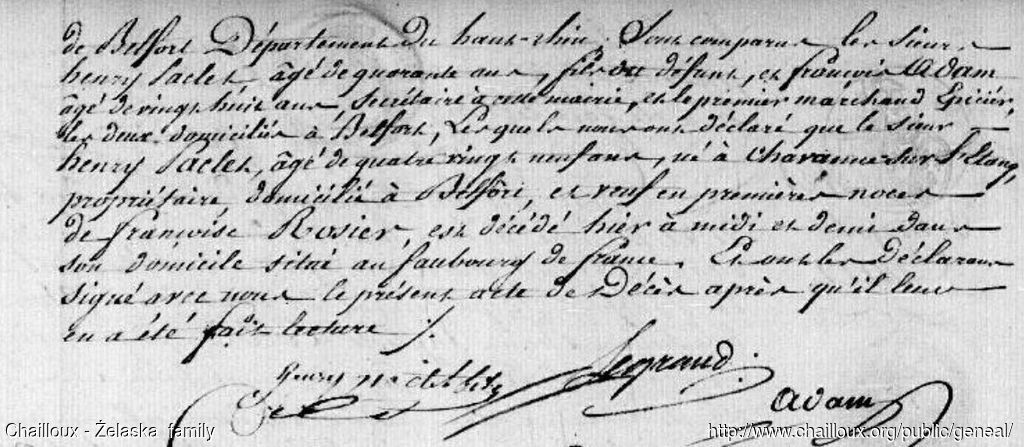 de Belfort Département du haut-rhin. Sont comparus les sieurs
henry Paclet, âgé de quarante ans, fils du défunt, et françois Adam
âgé de vingt huit ans, Secrétaire à cette mairie, et le premier marchand Epicier,
les deux domiciliés à Belfort, Lesquels nous ont déclaré que le sieur
henry Paclet, âgé de quatre vingt neuf ans, né à Chavanne-sur-l'Etang,
propriétaire domicilié à Belfort, et veuf en premières noces
de françoise Rosier, est décédé hier à midi et demi dans
son domicile situé au faubourg de france. Et ont les déclarans
signé avec nous le présent acte de Décès après qu'il leur
en a été fait lecture ./.
henry Legrand
Adam
Chailloux - Želaska family
http://www.chailloux.org/public/geneal/